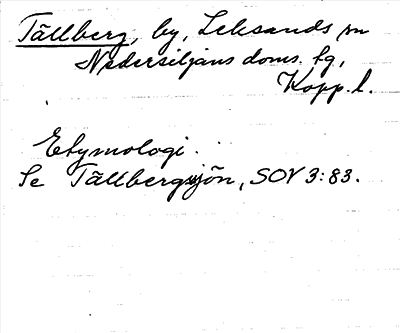 Tällberg, by, Leksands sn
Nedansiljans doms. tg,
Kopp. l.
Etymologi.
Se Tällbergsjön, SOV 3:83.